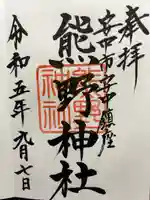 奉拝
安中市安中鎮座
熊野神社
令和五年九月七日